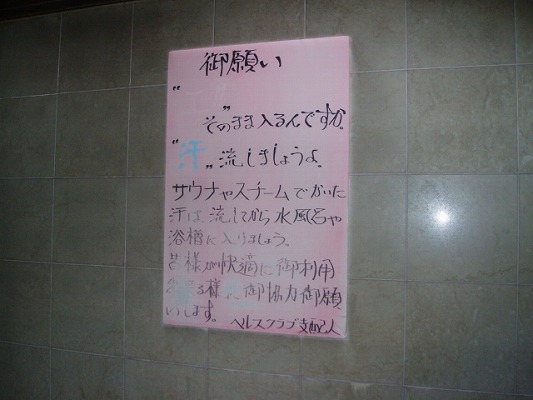 御願い
“
”そのまま入るんですか。
“汗”流しましょうよ。
サウナやスチームでかいた
汗は流してから水風呂や
浴槽に入りましょう。
皆様が快適に御利用
る様に御協力御願
いします。
ヘルスクラブ支配人